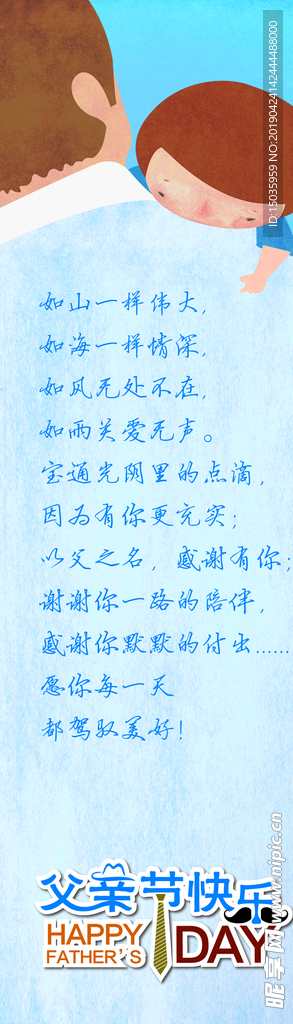 ID:15035959 NO:20190424142444488000
如山一样伟大，
如海一样情深，
如风无处不在，
如雨关爱无声。
宝通光阴里的点滴，
因为有你更充实；
以父之名，感谢有你；
谢谢你一路的陪伴，
感谢你默默的付出……
愿你每一天
都驾驭美好！
父亲节快乐
HAPPY
FATHER'S
DAY
昵享网 www.nipic.cn